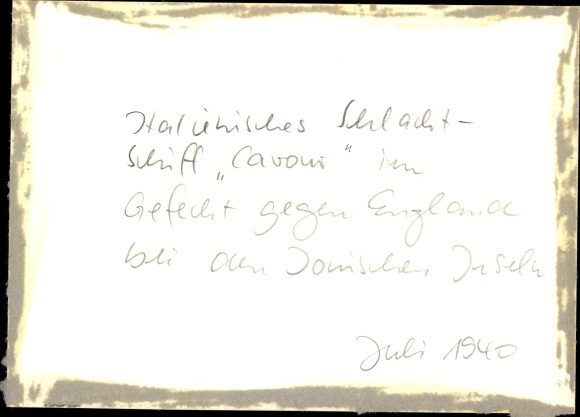 Italienisches Schlacht-
schiff „Cavour" im
Gefecht gegen England
bei den Ionischen Inseln
Juli 1940